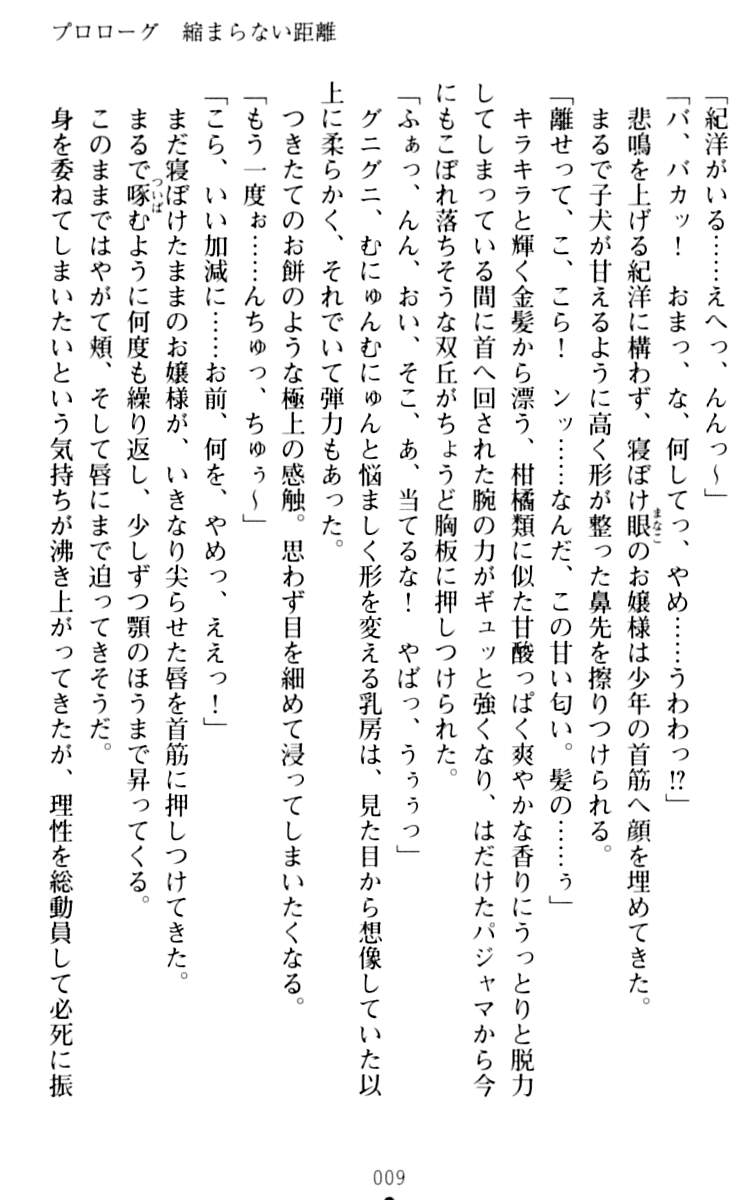 プロローグ　縮まらない距離
「紀洋がいる……えへっ、んんっ～」
「バ、バカッ！　おまっ、な、何してっ、やめ……うわわっ!?」
悲鳴を上げる紀洋に構わず、寝ぼけ眼のお嬢様は少年の首筋へ顔を埋めてきた。
まなこ
まるで子犬が甘えるように高く形が整った鼻先を擦りつけられる。
「離せって、こ、こら！　ンッ……なんだ、この甘い匂い。髪の……ぅ」
キラキラと輝く金髪から漂う、柑橘類に似た甘酸っぱく爽やかな香りにうっとりと脱力
してしまっている間に首へ回された腕の力がギュッと強くなり、はだけたパジャマから今
にもこぼれ落ちそうな双丘がちょうど胸板に押しつけられた。
「ふぁっ、んん、おい、そこ、あ、当てるな！　やばっ、うぅぅっ」
グニグニ、むにゅんむにゅんと悩ましく形を変える乳房は、見た目から想像していた以
上に柔らかく、それでいて弾力もあった。
つきたてのお餅のような極上の感触。思わず目を細めて浸ってしまいたくなる。
「もう一度ぉ……んちゅっ、ちゅぅ～」
「こら、いい加減に……お前、何を、やめっ、ええっ！」
まだ寝ぼけたままのお嬢様が、いきなり尖らせた唇を首筋に押しつけてきた。
まるで啄むように何度も繰り返し、少しずつ顎のほうまで昇ってくる。
ついば
このままではやがて頬、そして唇にまで迫ってきそうだ。
身を委ねてしまいたいという気持ちが沸き上がってきたが、理性を総動員して必死に振
009